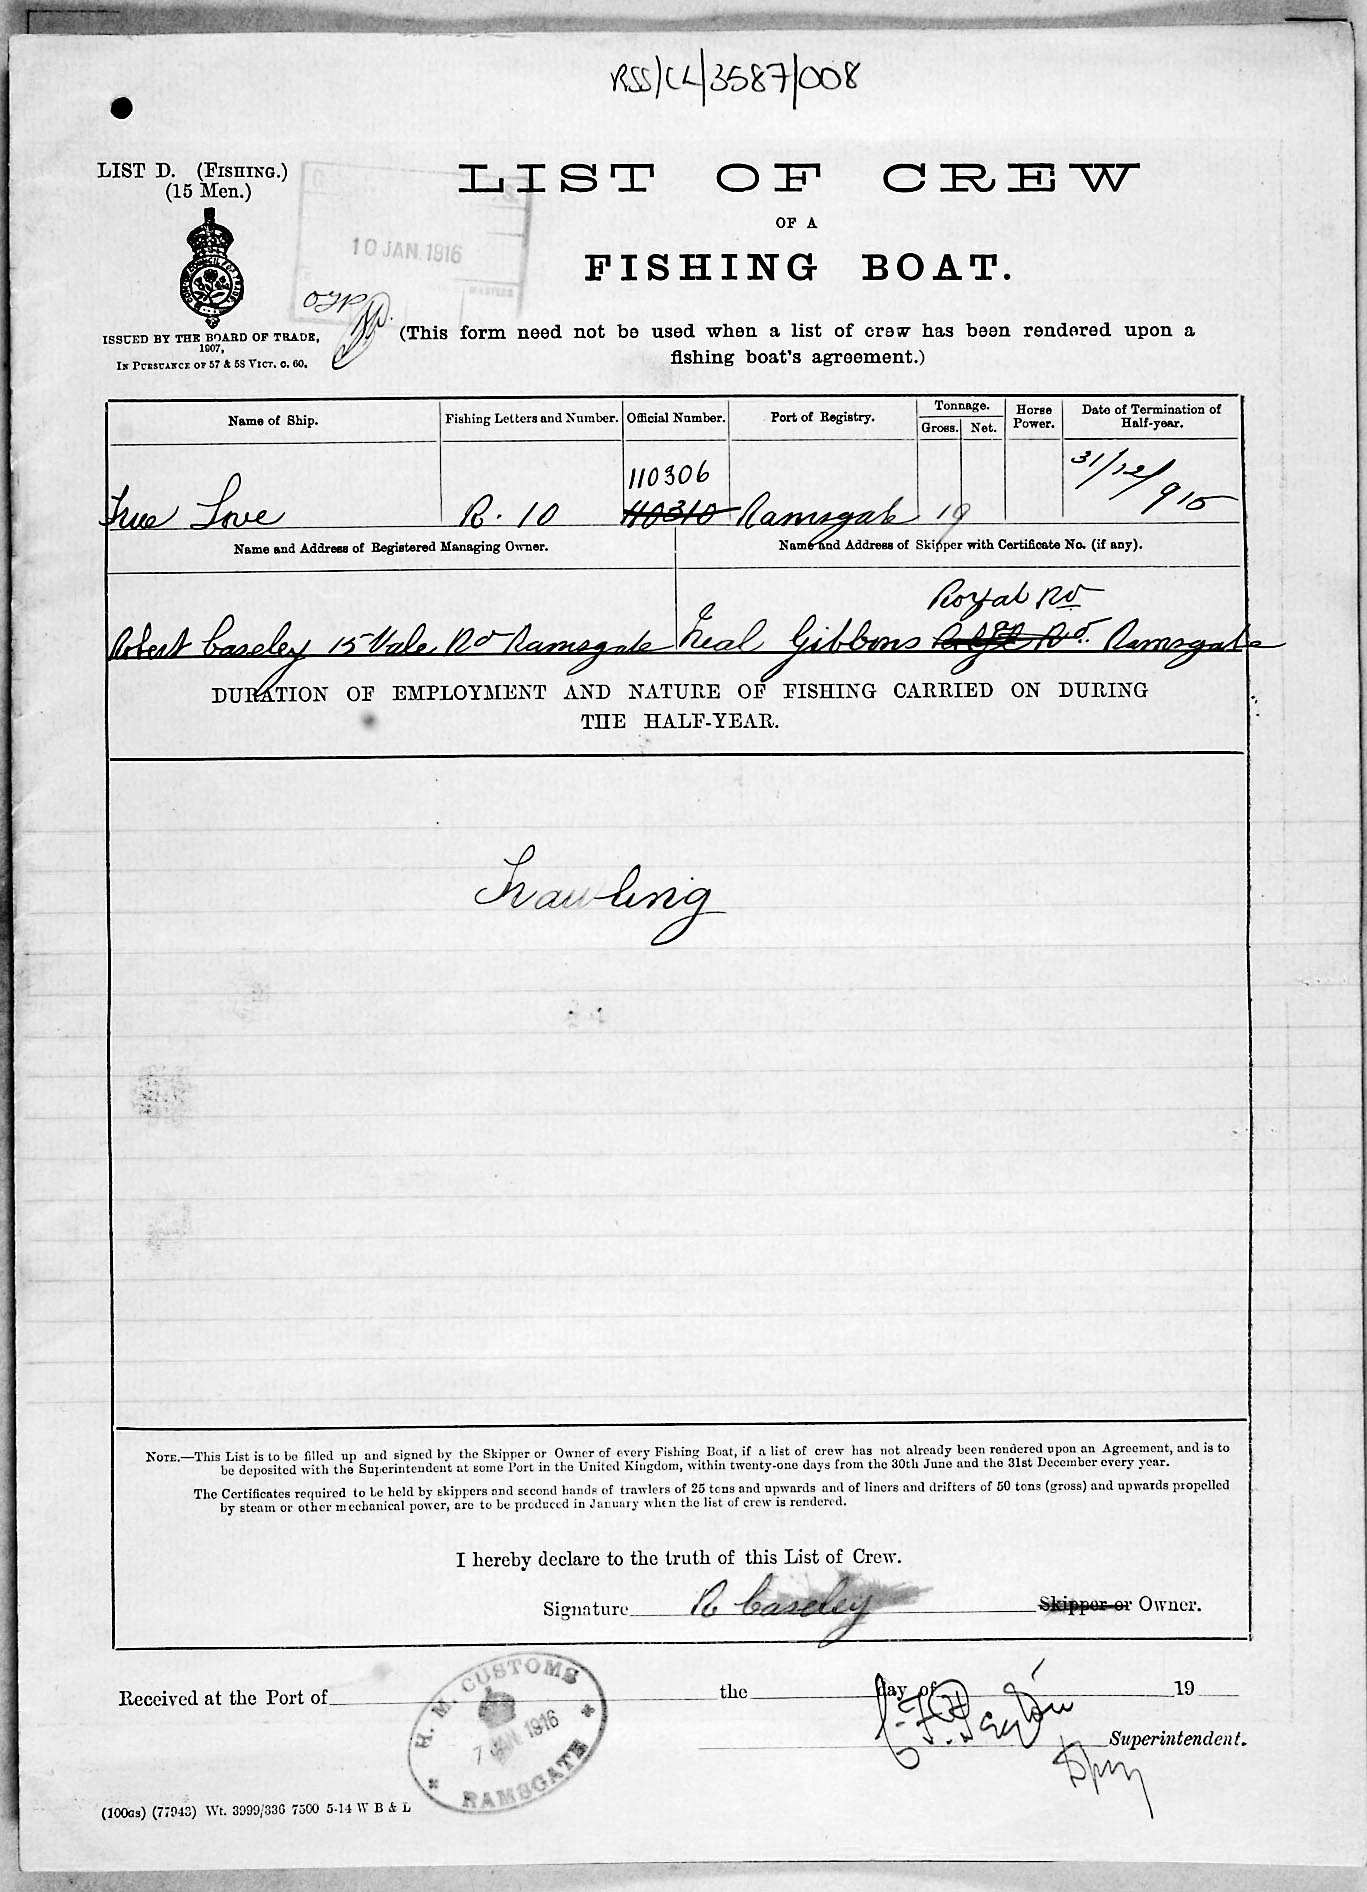 RSS/CL/3587/008
LIST D. (FISHING.)
(15 Men.)
LIST OF CREW
OF A
FISHING BOAT.
10 JAN. 1916
ISSUED BY THE BOARD OF TRADE,
1907,
IN PURSUANCE OF 57 & 58 VICT. c. 60.
(This form need not be used when a list of crew has been rendered upon a
fishing boat's agreement.)
Name of Ship. Fishing Letters and Number. Official Number. Port of Registry. Tonnage. Gross. Net. Horse Power. Date of Termination of Half-year.
110306
31/12/915
True Love R. 10 110310 Ramsgate 19
Name and Address of Registered Managing Owner. Name and Address of Skipper with Certificate No. (if any).
Royal Rd
Robert Caseley 15 Vale Rd Ramsgate Neal Gibbons Rd. Ramsgate
DURATION OF EMPLOYMENT AND NATURE OF FISHING CARRIED ON DURING
THE HALF-YEAR.
Trawling
NOTE.—This List is to be filled up and signed by the Skipper or Owner of every Fishing Boat, if a list of crew has not already been rendered upon an Agreement, and is to
be deposited with the Superintendent at some Port in the United Kingdom, within twenty-one days from the 30th June and the 31st December every year.
The Certificates required to be held by skippers and second hands of trawlers of 25 tons and upwards and of liners and drifters of 50 tons (gross) and upwards propelled
by steam or other mechanical power, are to be produced in January when the list of crew is rendered.
I hereby declare to the truth of this List of Crew.
Signature R Caseley Skipper or Owner.
H. M. CUSTOMS
7 JAN 1916
RAMSGATE
Received at the Port of the day of 19
Superintendent.
(100gs) (77943) Wt. 3999/336 7500 5-14 W B & L